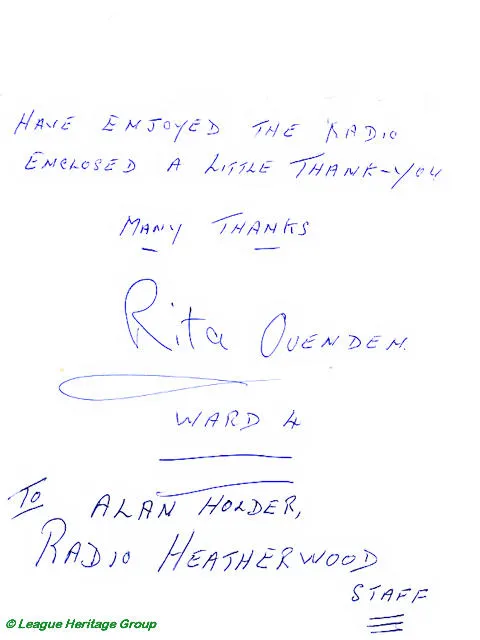 HAVE ENJOYED THE RADIO
ENCLOSED A LITTLE THANK-YOU
MANY THANKS
Rita OVENDEN.
WARD 4
TO ALAN HOLDER,
RADIO HEATHERWOOD
STAFF
© League Heritage Group